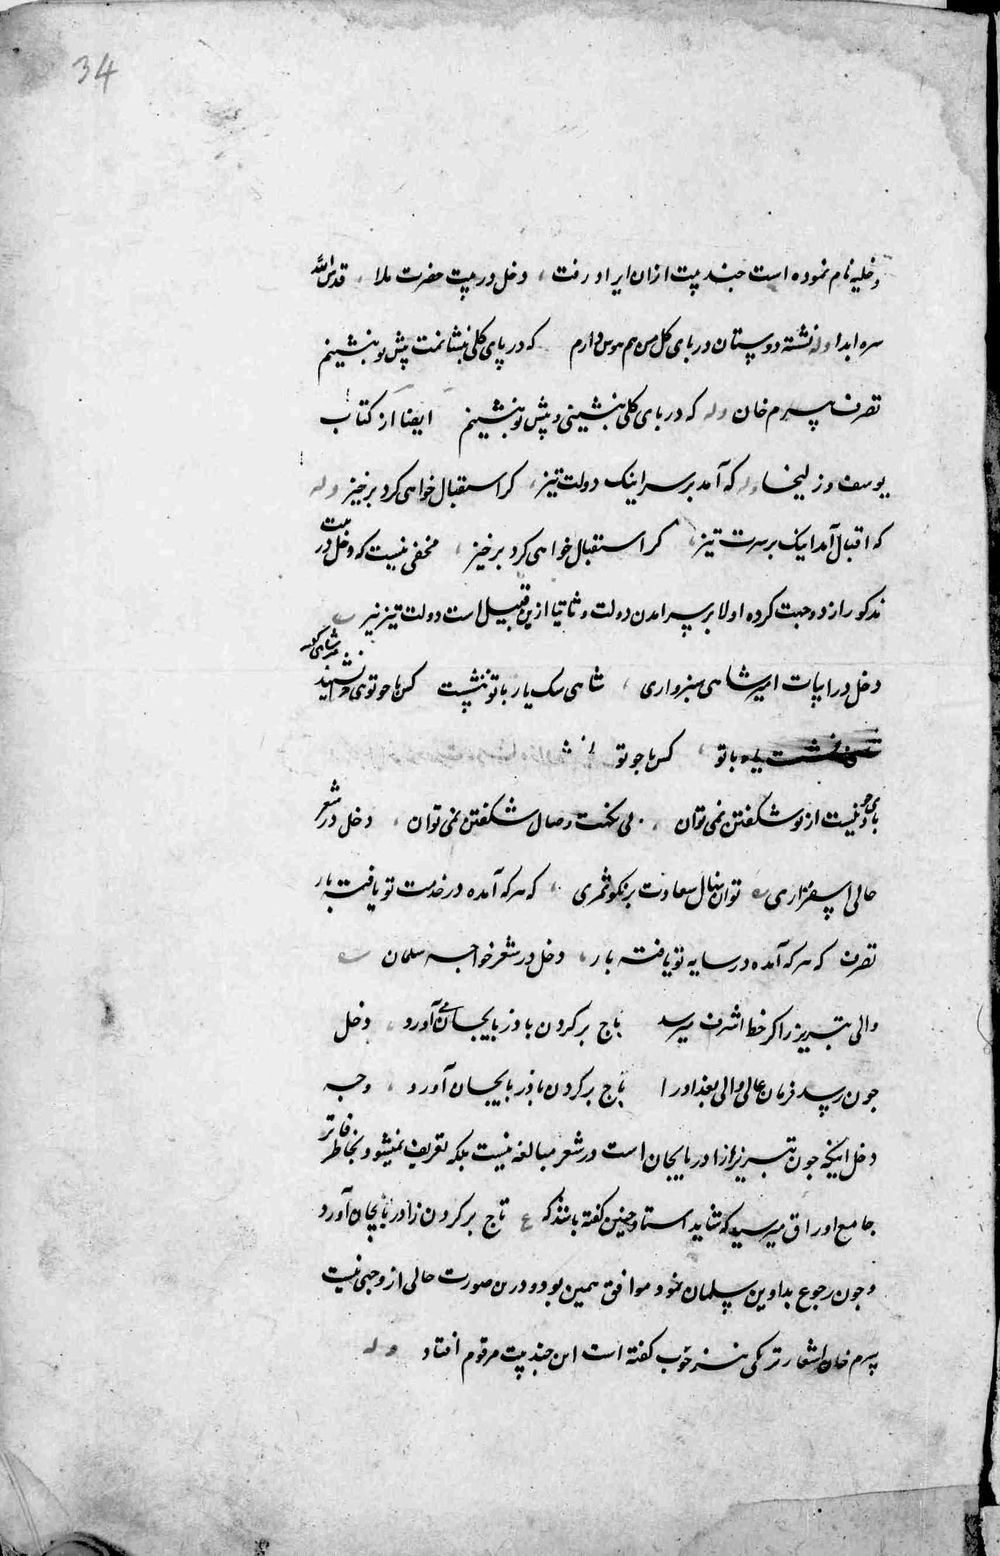 34
دخلیه نام نموده است چند بیت ازان ایراد رفت ، دخل در بیت حضرت ملا ، قدس الله
سره ابدا وله نشسته دوستان در پای گل من هم هوس دارم که در پای گلی بنشانمت پیش تو بنشینم
تصرف بیرم خان وله که در پای گلی بنشینی و پیش تو بنشینم ایضا از کتاب
یوسف و زلیخا وله که آمد بر سر اینک دولت تیز ، کر استقبال خواهی کرد برخیز وله
که اقبال آمد اینک بر سرت تیز ، کر استقبال خواهی کرد برخیز ، مخفی نیست که دخل در بیت
مذکور از دو جهت کرده اولا بر سر امدن دولت و ثانیا ازین قبیل است دولت تیز نیز
دخل در ابیات امیر شاهی سبزواری ، شاهی سک یار با تو ننشست کس با چو توی
با تو ، کس با چو تو
نیست از تو شکفتن نمی توان ، بی نکهت وصال شکفتن نمی توان ، دخل در شعر
حالی اسفزاری توان نهال سعادت برنکو ثمری ، که هر که آمده در خدمت تو یافته بار
تصرف که هر که آمده در سایه تو یافته بار ، دخل در شعر خواجه سلمان
والی تبریز را کر خط اشرف میرسد باج بر کردن باذربایجان می آورد ، دخل
چون رسد فرمان عالی والی بغداد را باج بر کردن باذربایجان آورد ، وجه
دخل اینکه چون تبریز از ادربایجان است در شعر مبالغه نیست بلکه تعریف نمیشود و بخاطر فاتر
جامع اوراق میرسید که شاید استاد چنین گفته باشد که ع تاج بر کردن ز ادربایجان آورد
و چون رجوع بداوین سلمان نمود موافق همین بود و درین صورت حالی از وجهی نیست
بیرم خان اشعار ترکی نیز خوب گفته است این چند بیت مرقوم افتاد وله